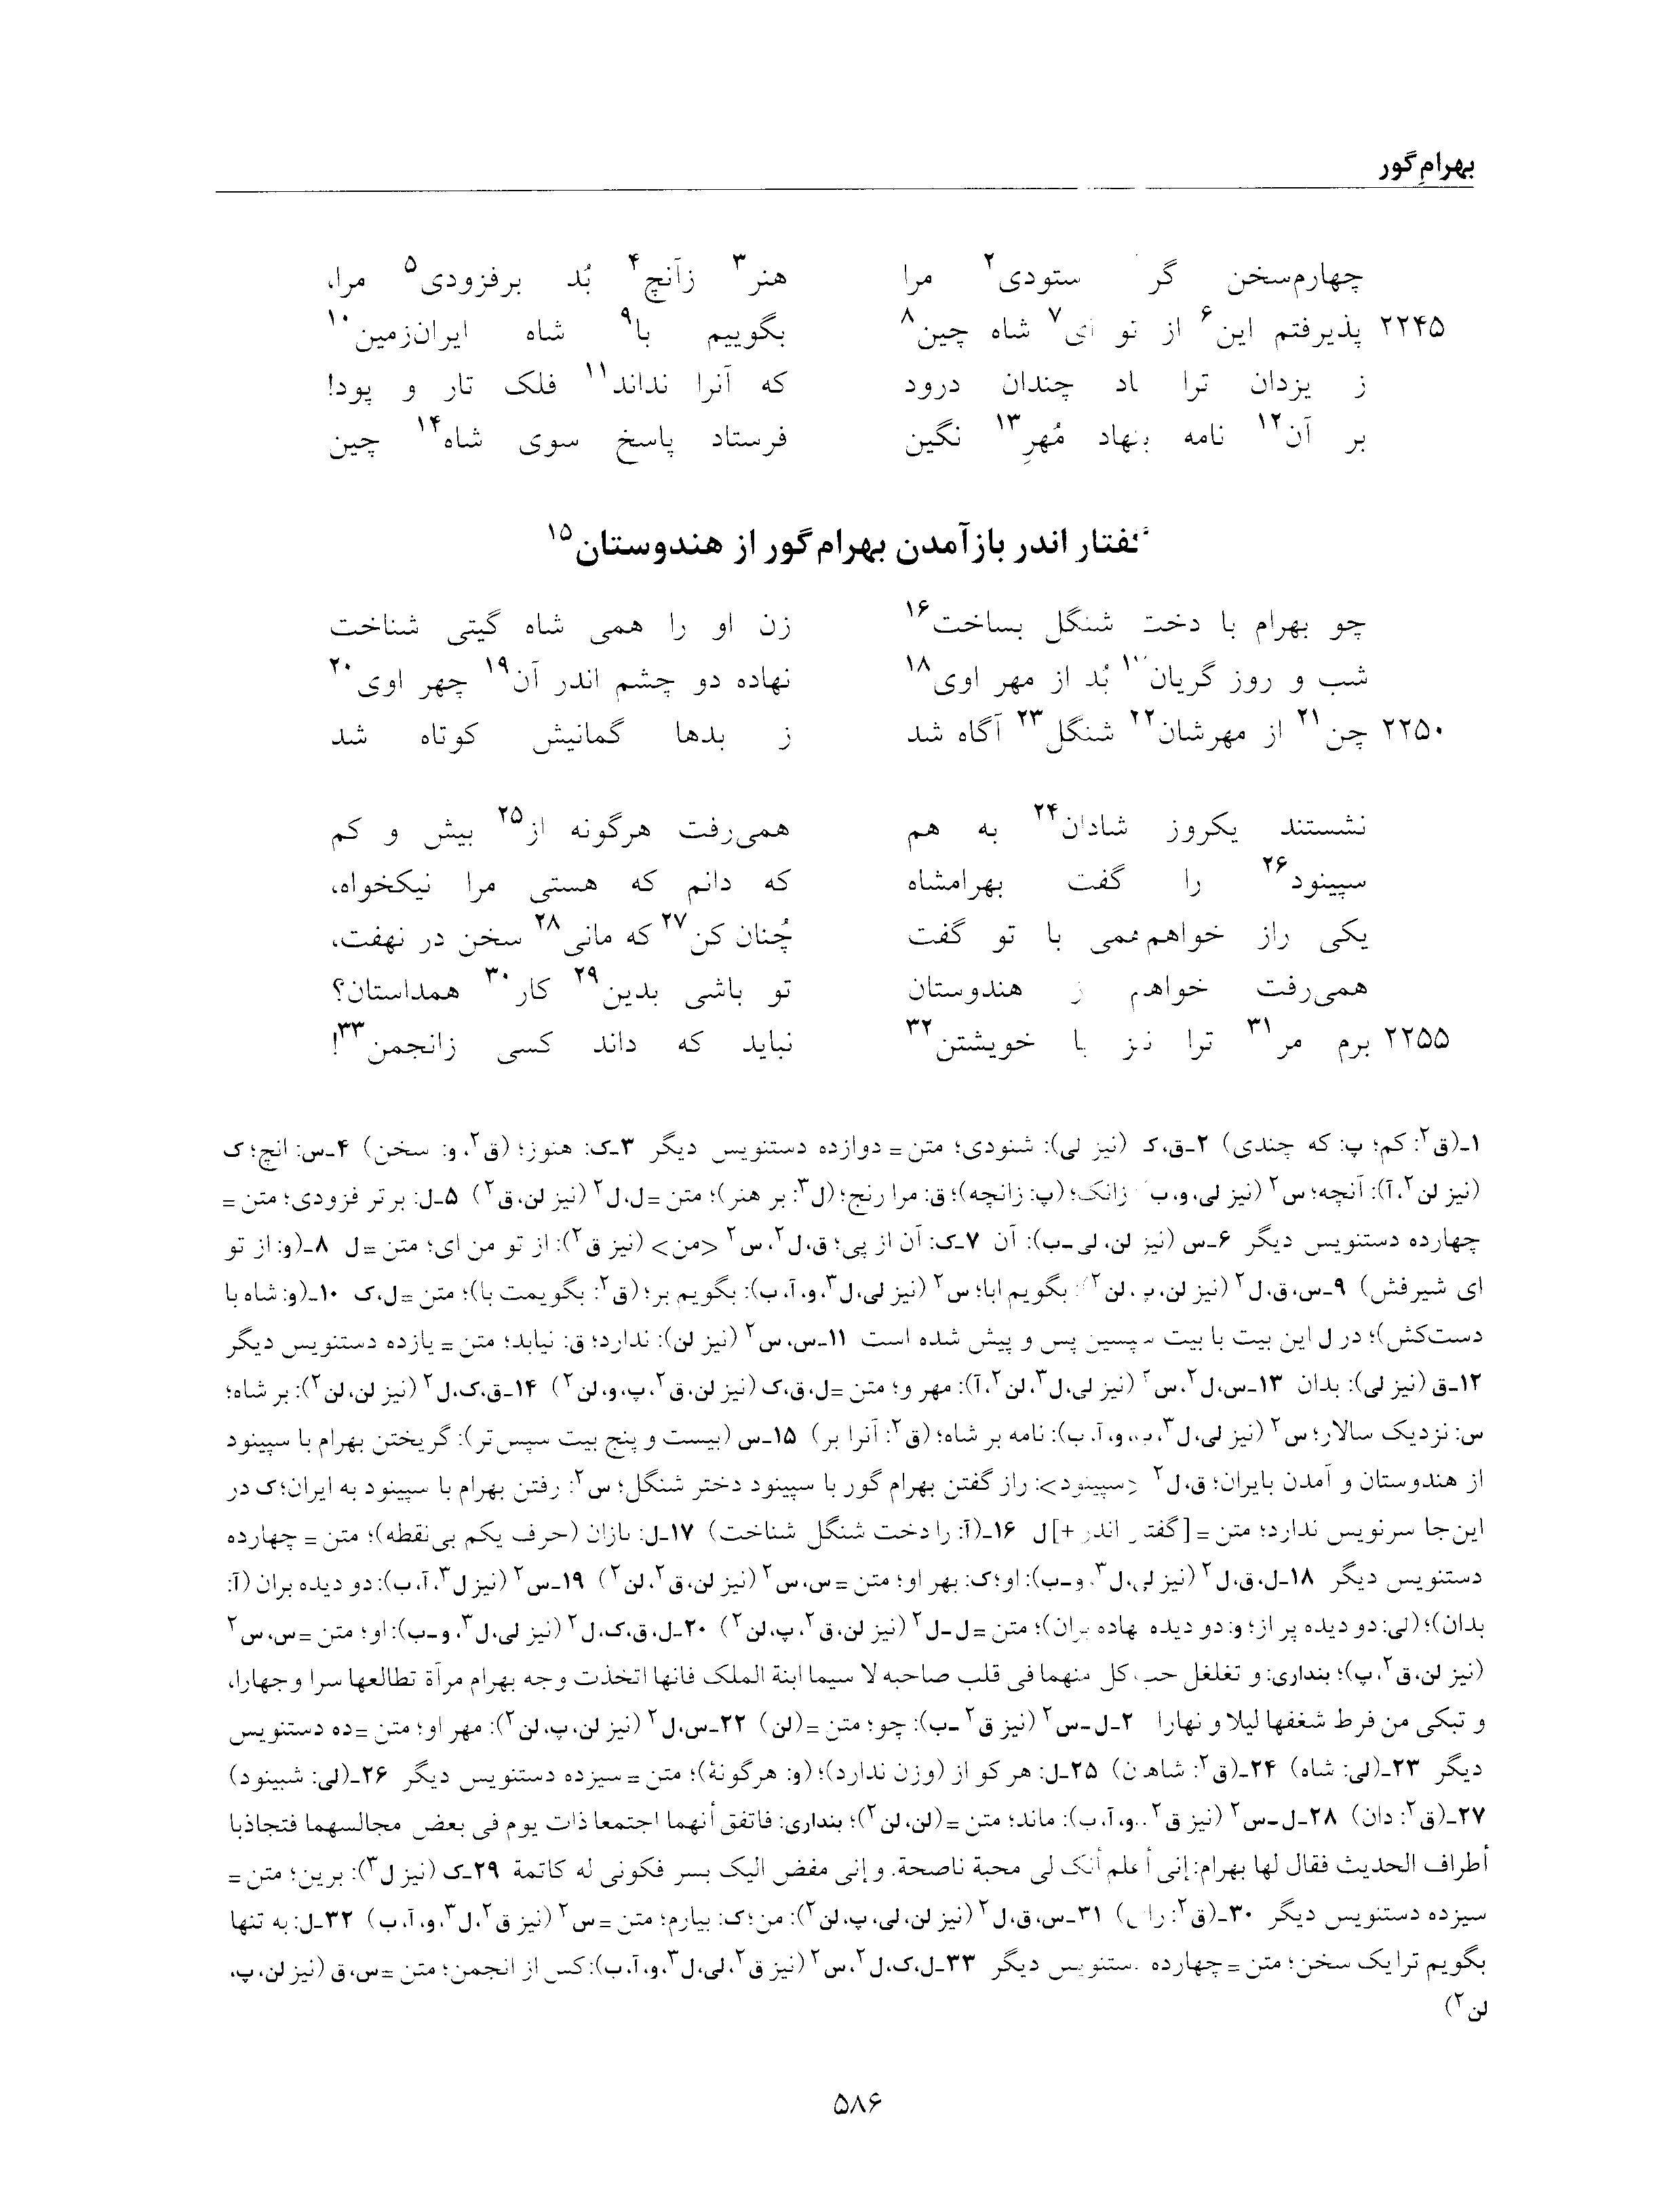 بهرامِ گور
چهارم‌سخن گر ستودی۲ مرا هنر۳ زآنچ۴ بُد برفزودی۵ مرا،
۲۲۴۵ پذیرفتم این۶ از تو ای۷ شاه چین۸ بگوییم با۹ شاه ایران‌زمین۱۰
ز یزدان ترا باد چندان درود که آنرا نداند۱۱ فلک تار و پود!
بر آن۱۲ نامه بنهاد مُهرِ۱۳ نگین فرستاد پاسخ سوی شاه۱۴ چین
گفتار اندر بازآمدن بهرام گور از هندوستان۱۵
چو بهرام با دخت شنگل بساخت۱۶ زن او را همی شاه گیتی شناخت
شب و روز گریان۱۷ بُد از مهر اوی۱۸ نهاده دو چشم اندر آن۱۹ چهر اوی۲۰
۲۲۵۰ چن۲۱ از مهرشان۲۲ شنگل۲۳ آگاه شد ز بدها گمانیش کوتاه شد
نشستند یکروز شادان۲۴ به هم همی‌رفت هرگونه از۲۵ بیش و کم
سپینود۲۶ را گفت بهرامشاه که دانم که هستی مرا نیکخواه،
یکی راز خواهم همی با تو گفت چُنان کن۲۷ که مانی۲۸ سخن در نهفت،
همی‌رفت خواهم ز هندوستان تو باشی بدین۲۹ کار۳۰ همداستان؟
۲۲۵۵ برم مر۳۱ ترا نیز با خویشتن۳۲ نباید که داند کسی زانجمن۳۳!
۱ـ(ق۲: کم؛ پ: که چندی) ۲ـق،ک (نیز لی): شنودی؛ متن = دوازده دستنویس دیگر ۳ـک: هنوز؛ (ق۲، و: سخن) ۴ـس: انچ؛ ک
(نیز لن۲،آ): آنچه؛ س۲ (نیز لی،و،ب): زانک؛ (پ: زانچه)؛ ق: مرا رنج؛ (ل۳: بر هنر)؛ متن =ل،ل۲ (نیز لن،ق۲) ۵ـل: برتر فزودی؛ متن =
چهارده دستنویس دیگر ۶ـس (نیز لن، لی‌ـ‌ب): آن ۷ـک: آن از پی؛ ق،ل۲،س۲ <من> (نیز ق۲): از تو من ای؛ متن =ل ۸ـ(و: از تو
ای شیرفش) ۹ـس،ق،ل۲ (نیز لن،پ،لن۲): بگویم ابا؛ س۲ (نیز لی،ل۳،و،آ،ب): بگویم بر؛ (ق۲: بگویمت با)؛ متن =ل،ک ۱۰ـ(و: شاه با
دست‌کش)؛ در ل این بیت با بیت سپسین پس و پیش شده است ۱۱ـس،س۲ (نیز لن): ندارد؛ ق: نیابد؛ متن = یازده دستنویس دیگر
۱۲ـق (نیز لی): بدان ۱۳ـس،ل۲،س۲ (نیز لی،ل۳،لن۲،آ): مهر و؛ متن =ل،ق،ک (نیز لن،ق۲،پ،و،لن۲) ۱۴ـق،ک،ل۲ (نیز لن،لن۲): بر شاه؛
س: نزدیک سالار؛ س۲ (نیز لی،ل۳،پ،و،آ،ب): نامه بر شاه؛ (ق۲: آنرا بر) ۱۵ـس (بیست و پنج بیت سپس‌تر): گریختن بهرام با سپینود
از هندوستان و آمدن بایران؛ ق،ل۲ <سپینود>: راز گفتن بهرام گور با سپینود دختر شنگل؛ س۲: رفتن بهرام با سپینود به ایران؛ ک در
این‌جا سرنویس ندارد؛ متن = [گفتار اندر +] ل ۱۶ـ(آ: را دخت شنگل شناخت) ۱۷ـل: ٮازان (حرف یکم بی‌نقطه)؛ متن = چهارده
دستنویس دیگر ۱۸ـل،ق،ل۲ (نیز لی،ل۳،و‌ـ‌ب): او؛ ک: بهر او؛ متن =س،س۲ (نیز لن،ق۲،لن۲) ۱۹ـس۲ (نیز ل۳،آ،ب): دو دیده بران (آ:
بدان)؛ (لی: دو دیده پر از؛ و: دو دیده نهاده بران)؛ متن =ل‌ـ‌ل۲ (نیز لن،ق۲،پ،لن۲) ۲۰ـل،ق،ک،ل۲ (نیز لی،ل۳،و‌ـ‌ب): او؛ متن =س،س۲
(نیز لن،ق۲،پ)؛ بنداری: و تغلغل حب کل منهما فی قلب صاحبه لا سیما ابنة الملک فانها اتخذت وجه بهرام مرآة تطالعها سرا وجهارا،
و تبکی من فرط شغفها لیلا و نهارا ۲ـل‌ـ‌س۲ (نیز ق۲‌ـ‌ب): چو؛ متن =(لن) ۲۲ـس،ل۲ (نیز لن،پ،لن۲): مهر او؛ متن =ده دستنویس
دیگر ۲۳ـ(لی: شاه) ۲۴ـ(ق۲: شاهان) ۲۵ـل: هر کو از (وزن ندارد)؛ (و: هرگونهٔ)؛ متن = سیزده دستنویس دیگر ۲۶ـ(لی: شبینود)
۲۷ـ(ق۲: دان) ۲۸ـل‌ـ‌س۲ (نیز ق۲..و،آ،ب): ماند؛ متن =(لن،لن۲)؛ بنداری: فاتفق أنهما اجتمعا ذات یوم فی بعض مجالسهما فتجاذبا
أطراف الحدیث فقال لها بهرام: إنی أعلم أنک لی محبة ناصحة. و إنی مفض الیک بسر فکونی له کاتمة ۲۹ـک (نیز ل۳): برین؛ متن =
سیزده دستنویس دیگر ۳۰ـ(ق۲: رای) ۳۱ـس،ق،ل۲ (نیز لن،لی،پ،لن۲): من؛ ک: بیارم؛ متن =س۲ (نیز ق۲،ل۳،و،آ،ب) ۳۲ـل: به تنها
بگویم ترا یک سخن؛ متن = چهارده دستنویس دیگر ۳۳ـل،ک،ل۲،س۲ (نیز ق۲،لی،ل۳،و،آ،ب): کس از انجمن؛ متن =س،ق (نیز لن،پ،
لن۲)
۵۸۶